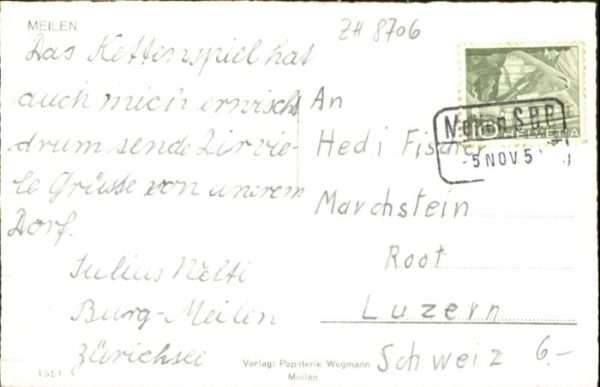 MEILEN
ZH 8706
Das Kettenspiel hat
auch mich erwischt
drum sende Dir vie-
le Grüsse von unerem
Dorf.
Julius
Burg-Meilen
Zürichsee
An
Hedi Fischer
Marchstein
Root
Luzern
Schweiz 6.-
Meilen SBB
-5 NOV 5
HELVETIA
Verlag: Papeterie Wegmann
Meilen